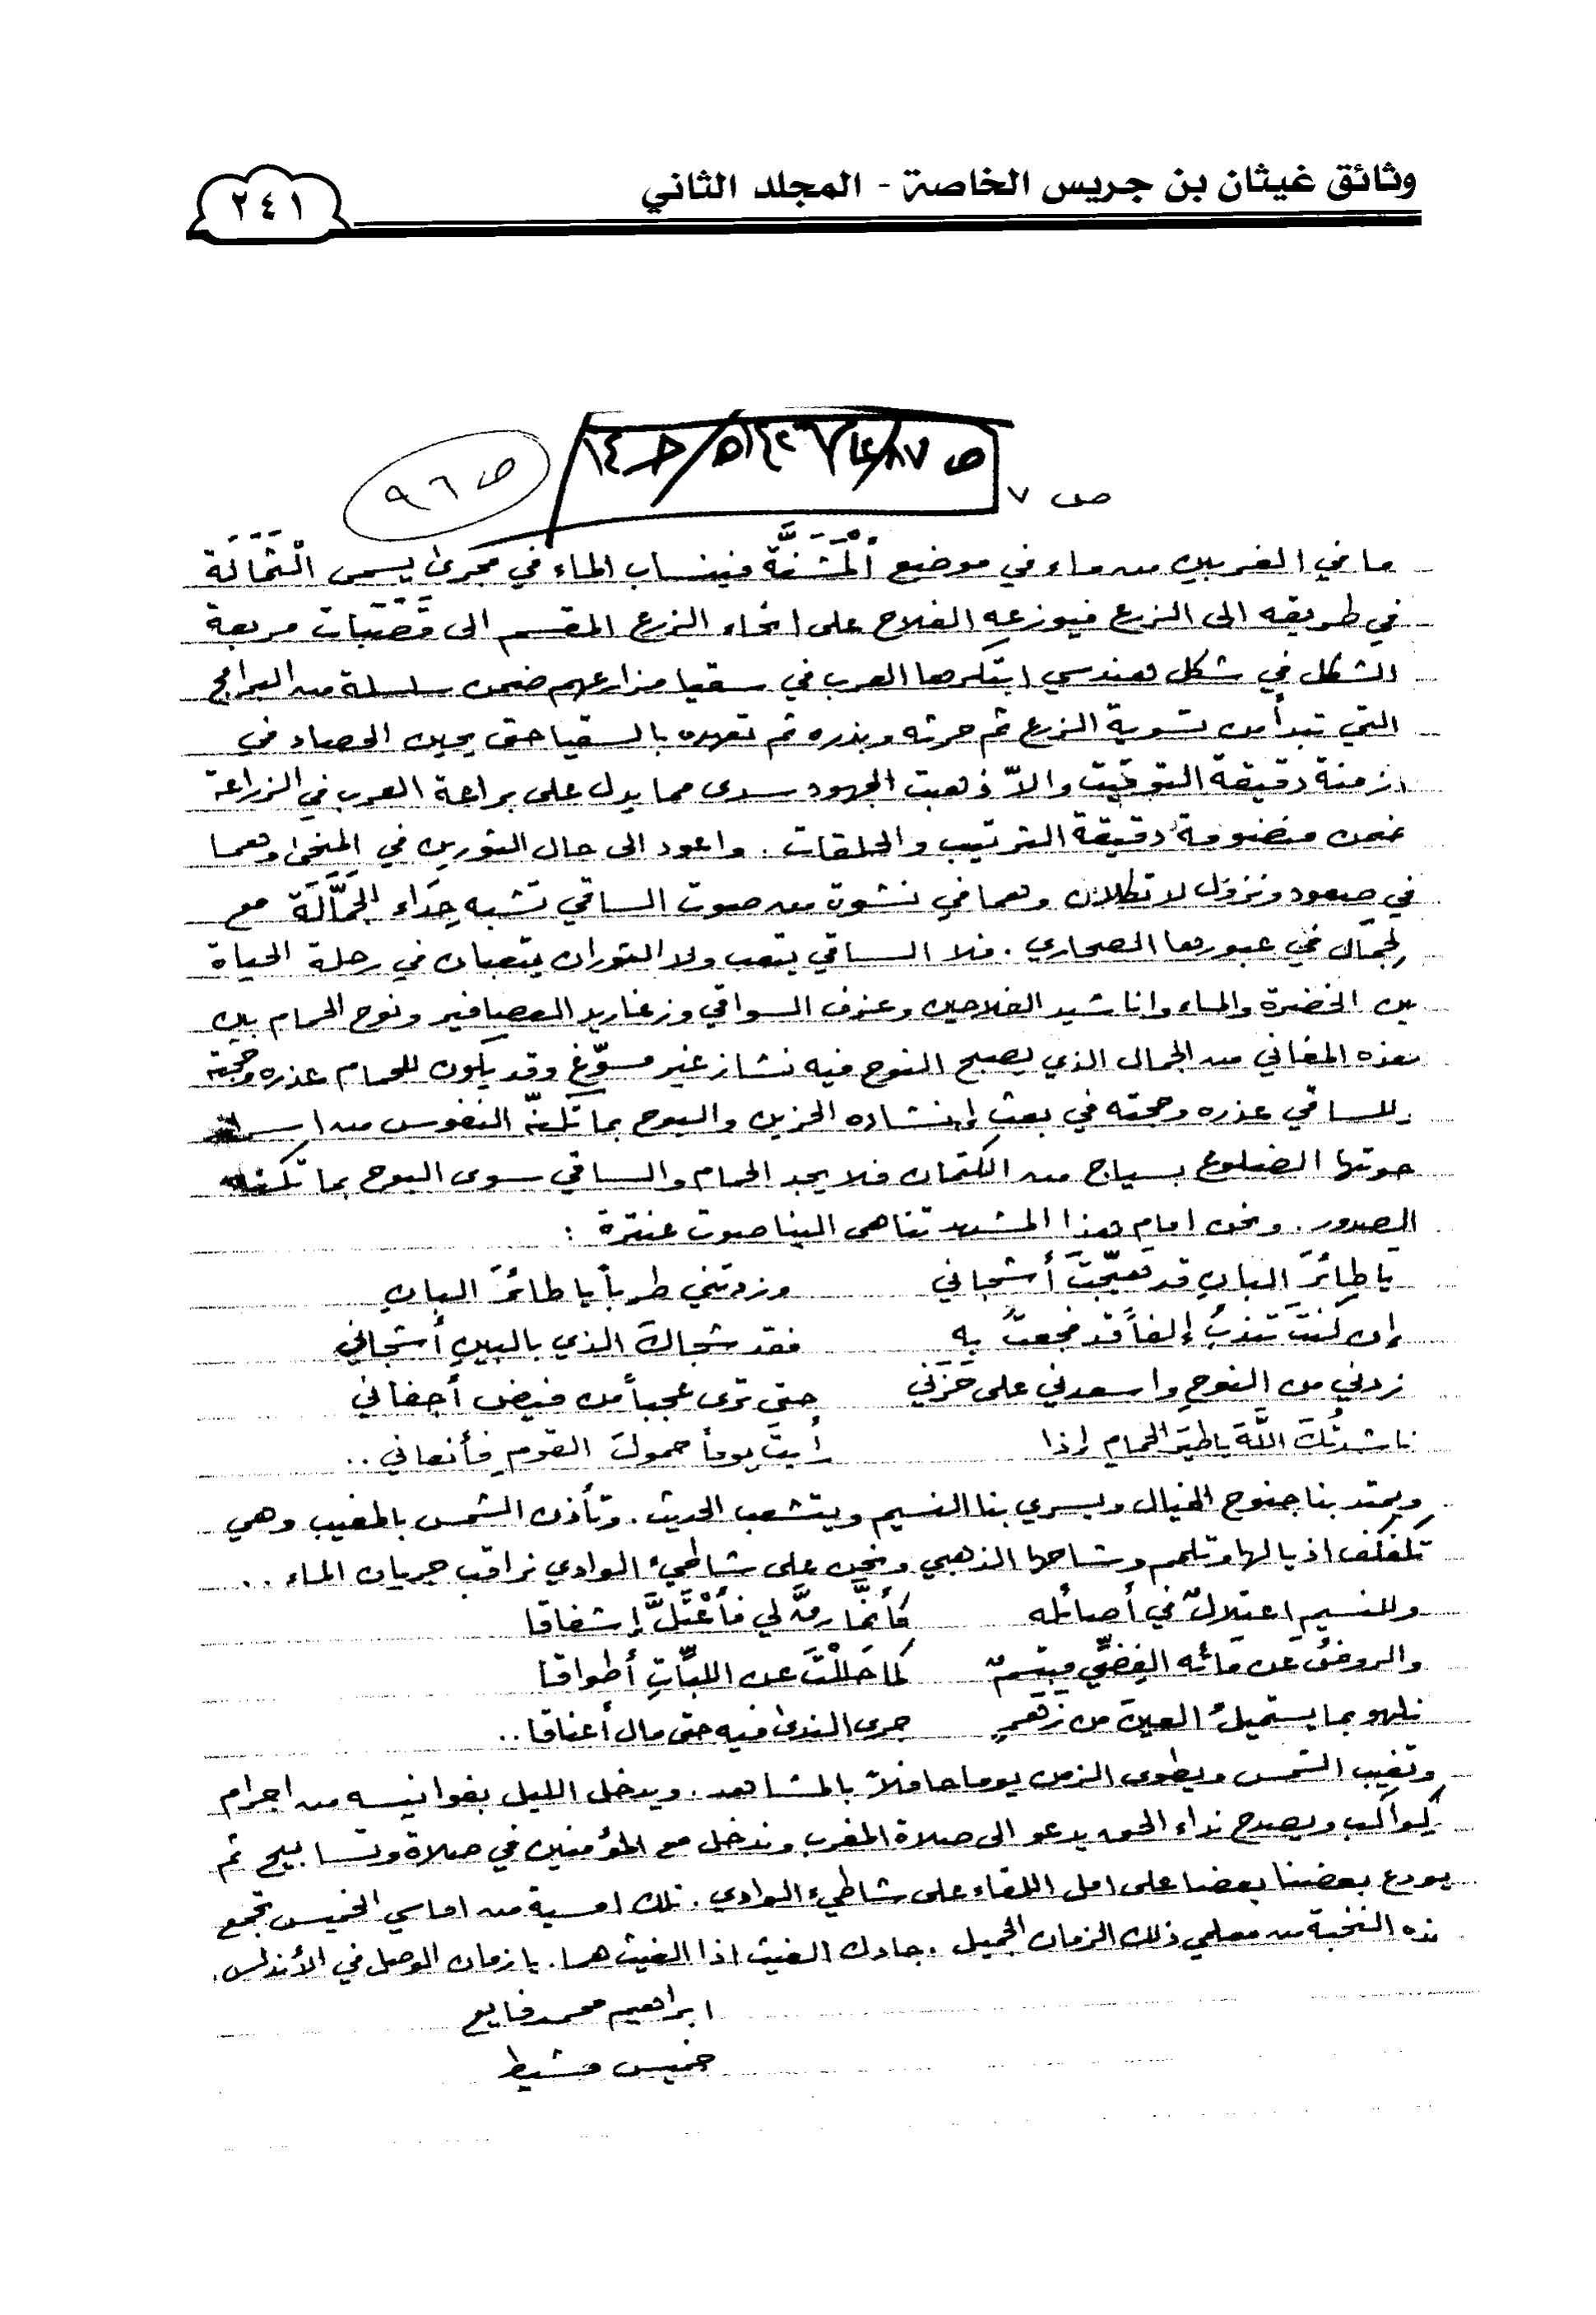 وثائق غيثان بن جريس الخاصة - المجلد الثاني
٢٤١
ص ٩٦
ص ٧
ما في الغربين من ماء في موضع اَلْمَشَنَّة فينساب الماء في مجرى يسمى الْثَمَالَة
في طريقه الى الزرع فيوزعه الفلاح على انحاء الزرع المقسم الى قَصَبَات مربعة
الشكل في شكل هندسي ابتكرها العرب في سقيا مزارعهم ضمن سلسلة من البرامج
التي تبدأ من تسوية الزرع ثم حرثه وبذره ثم تعهده بالسقيا حتى يحين الحصاد في
ازمنة دقيقة التوقيت والاّ ذهبت الجهود سدى مما يدل على براعة العرب في الزراعة
ضمن منضومة دقيقة الترتيب والحلقات . واعود الى حال الثورين في المنحى وهما
في صعود ونزول لا تكلان وهما في نشوة من صوت الساقي تشبه حِدَاء الجَمَّالَة مع
لجمال في عبورها الصحاري . فلا الساقي يتعب ولا الثوران يتعبان في رحلة الحياة
بين الخضرة والماء وانا شيد الفلاحين وعزف السواقي وزغاريد العصافير ونوح الحمام بين
هذه المغاني من الجمال الذي يصبح النوح فيه نشاز غير مسوّغ وقد يكون للحمام عذره وحجته
وللساقي عذره وحجته في بعث إنشاده الحزين والبوح بما تكنّه النفوس من اسرار
حوتها الضلوع بسياج من الكتمان فلا يجد الحمام والساقي سوى البوح بما تكنه
الصدور . ونحن امام هذا المشهد تناهى الينا صوت عنترة :
يا طائرَ البانِ قد هيّجتَ أشجاني وزدتني طرباً يا طائرَ البانِ
إن كنتَ تندبُ إلفاً قد فجعتَ به فقد شجاكَ الذي بالبينِ أشجاني
زدني من النوحِ واسعدني على حَزَني حتى ترى عجباً من فيض أجفاني
ناشدتُكَ اللَّهَ يا طيرَ الحمام إذا رأيتَ يوماً حمولَ القومِ فأنعاني ..
ويمتد بنا جنوح الخيال ويسري بنا النسيم ويتشعب الحديث . وتأذن الشمس بالمغيب وهي
تكفكف اذيالها وتلمم وشاحها الذهبي ونحن على شاطيء الوادي نراقب جريان الماء ..
وللنسيمِ اعتِلالٌ في أصائله كأنّما رقَّ لي فأعْتَلَّ إشفاقا
والروضُ عن مائه الفِضيِّ مبتسمٌ كما حَلَلْتَ عن اللبّاتِ أطواقا
نلهو بما يستميلُ العينَ من زَهَرٍ جرى الندى فيه حتى مال أعناقا ..
وتغيب الشمس ويطوى الزمن يوما حافلاً بالمشاهد . ويدخل الليل بفوانيسه من اجرام
كواكب ويصدح نداء الحق يدعو الى صلاة المغرب وندخل مع المؤمنين في صلاة وتسابيح ثم
يودع بعضنا بعضا على امل اللقاء على شاطيء الوادي . تلك امسية من اماسي الخميس تجمع
هذه النخبة من معلمي ذلك الزمان الجميل . جادك الغيث اذا الغيث هما . يا زمان الوصل في الأندلس .
ابراهيم محمد فايع
خميس مشيط